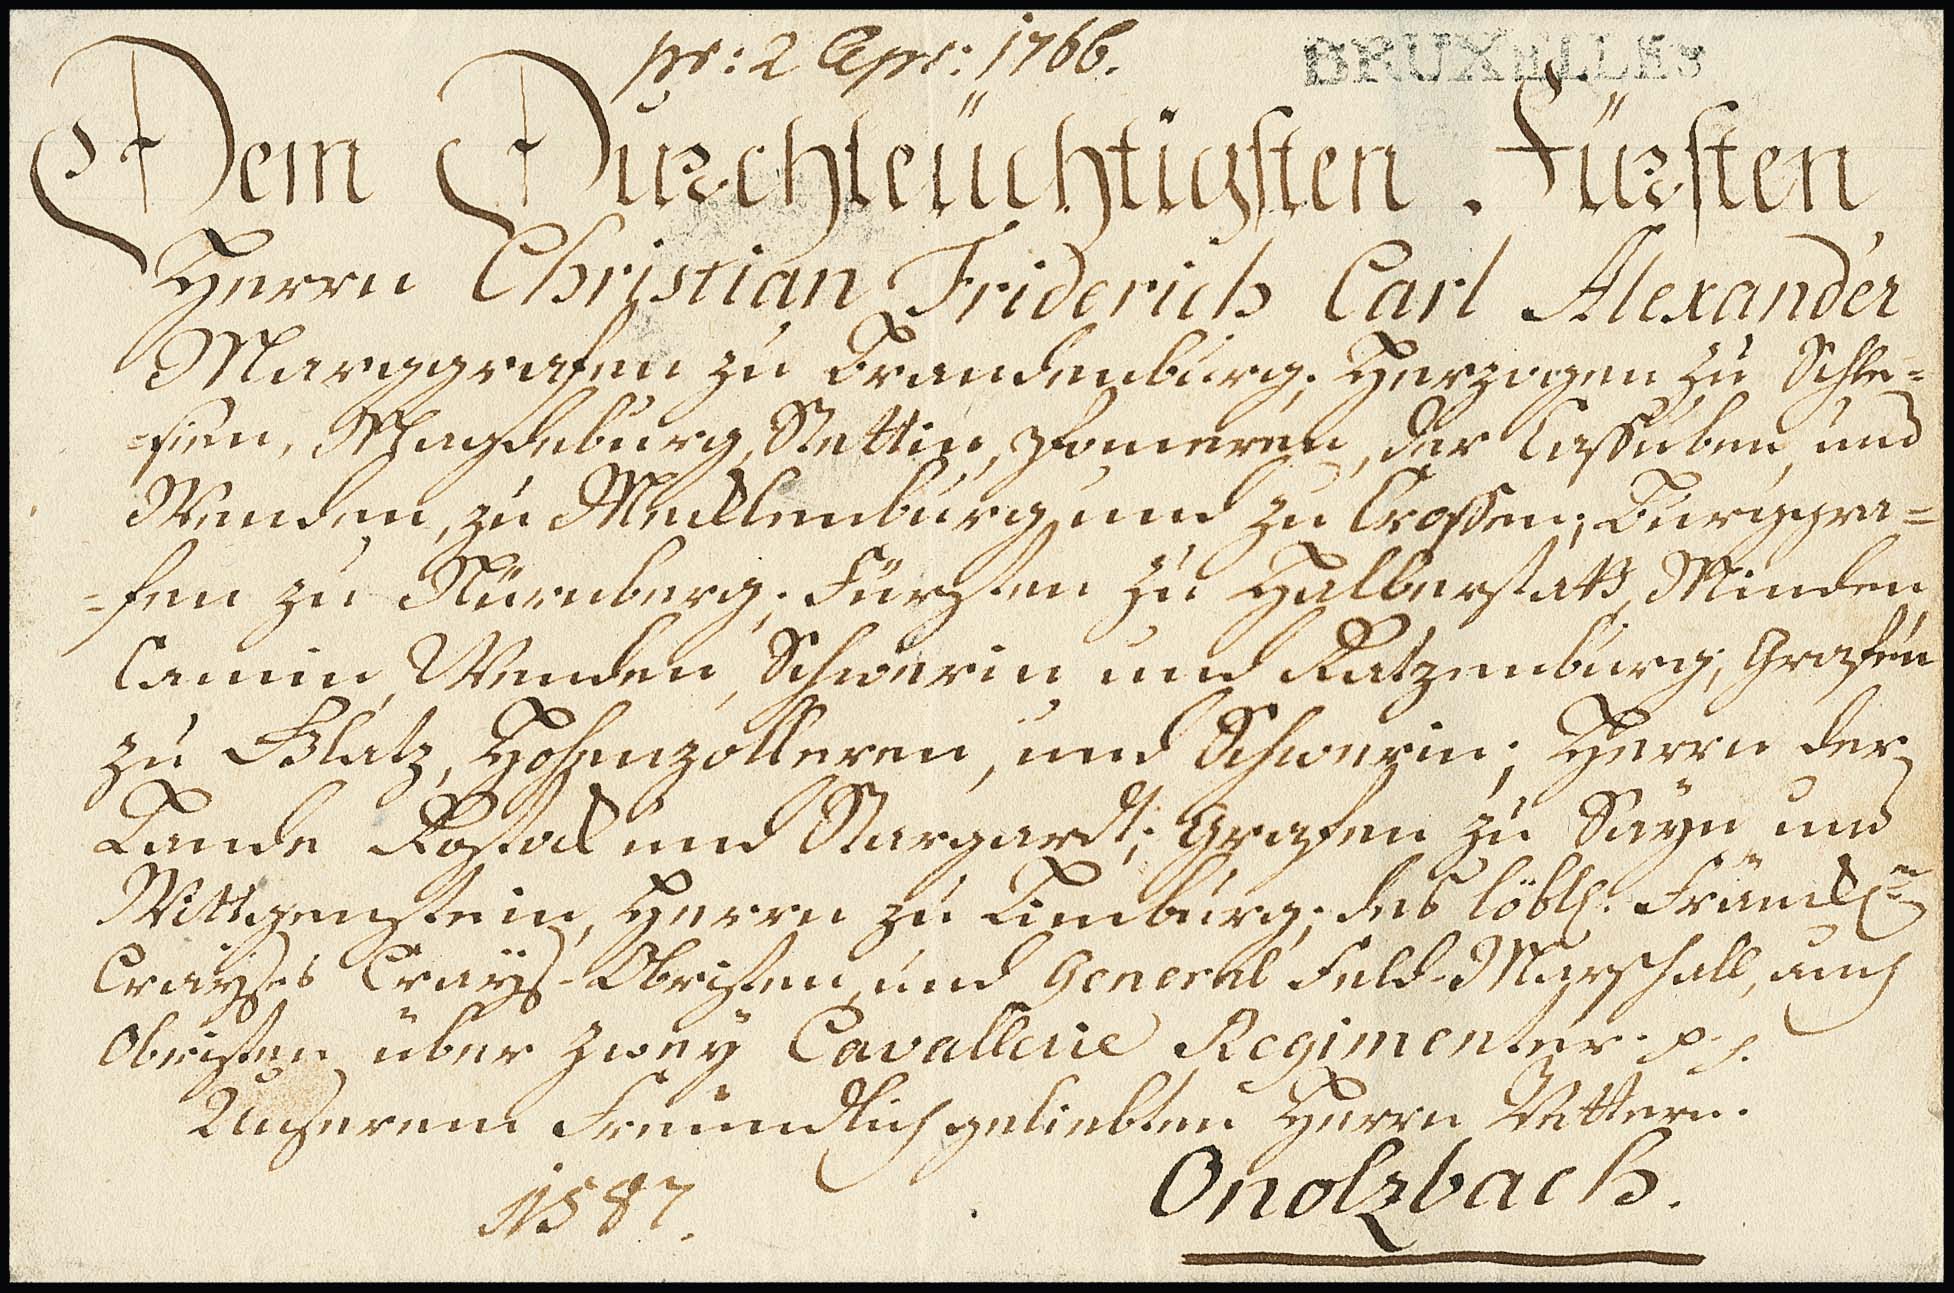 pr: 2 Apr: 1766.
BRUXELLES
Dem Durchleüchtigsten Fürsten,
Herrn Christian Friderich Carl Alexander
Marggrafen zu Brandenburg, Herzogen zu Schle=
=sien, Magdeburg, Stettin, Pomeren, der Cassuben, und
Wenden, zu Mecklenburg und zu Crossen; Burggra=
=fen zu Nürnberg; Fürsten zu Halberstatt, Minden,
Camin, Wenden, Schwerin und Ratzenburg; Grafen
zu Glatz, Hohenzolleren, und Schwerin; Herrn der
Lande Rostok und Stargardt; Grafen zu Sayn und
Wittgenstein, Herrn zu Limburg; des löbl. Fränck:
Crayses Crayß-Obristen, und General Feld-Marschall, auch
Obristen über zwey Cavallerie Regimenter p. p.
Unserem Freundtlich geliebten Herrn Vettern.
1587.
Onolzbach.